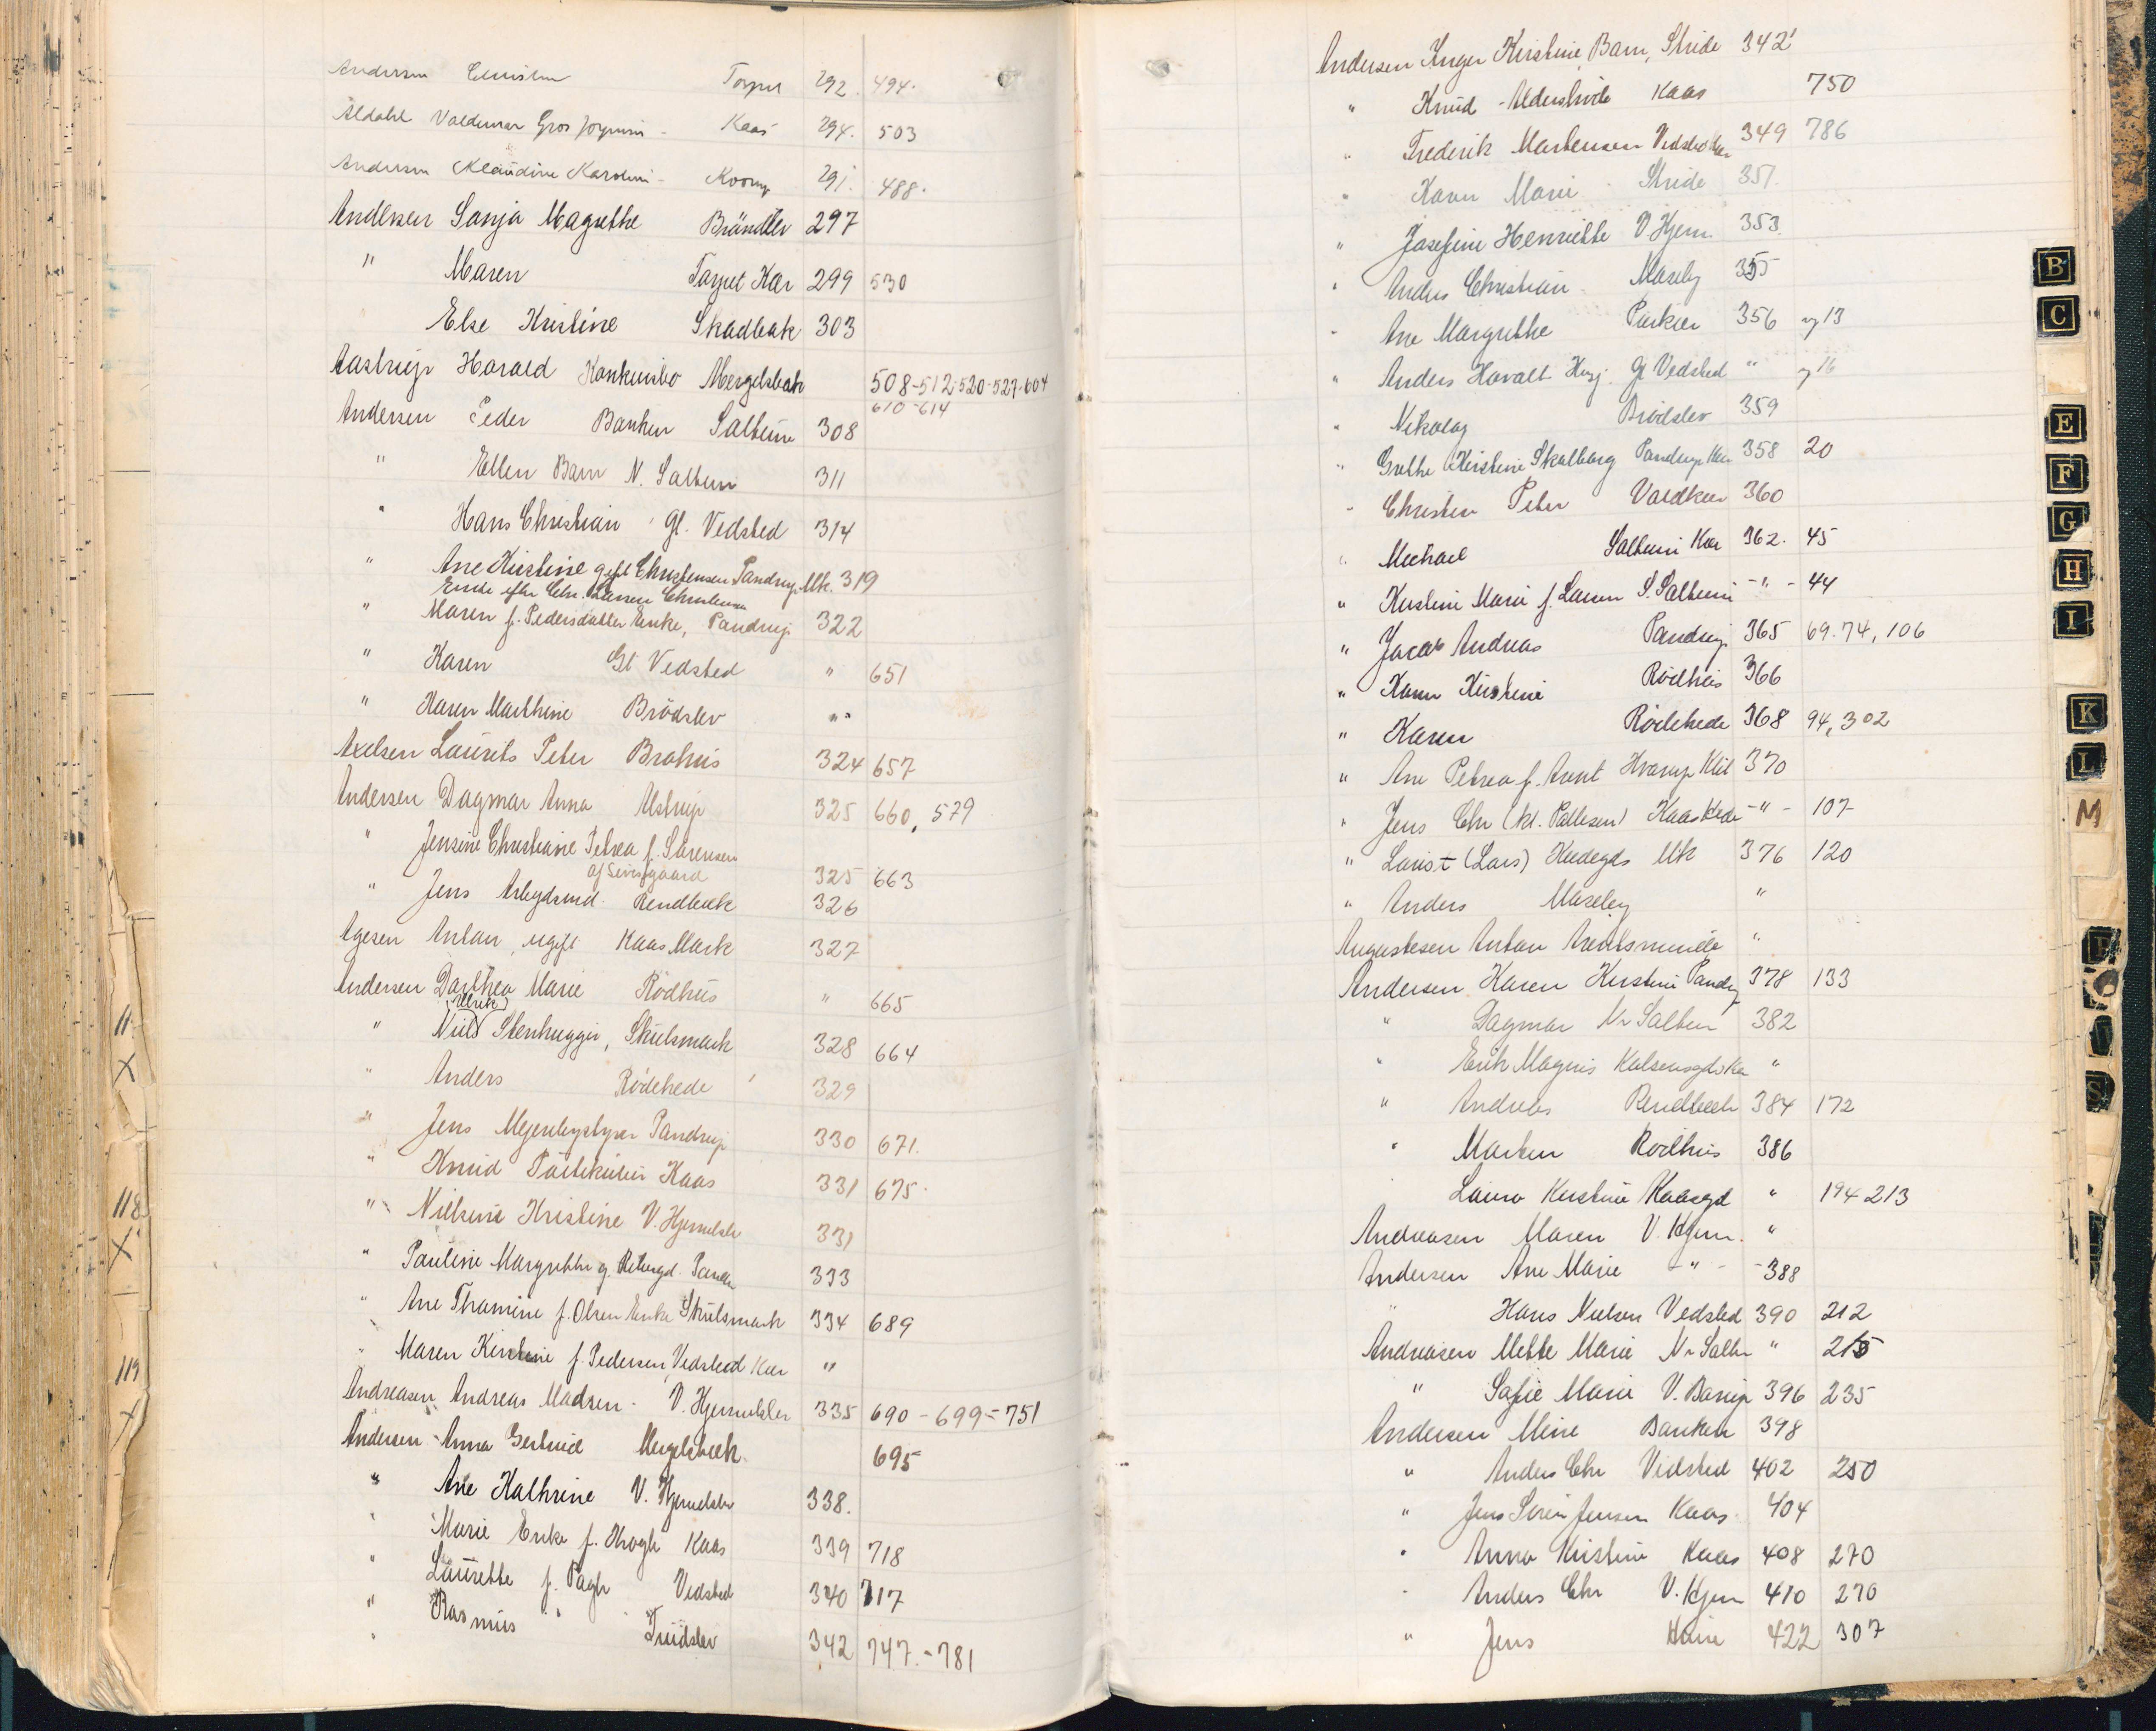 Andersen Christen Torpet 292. 494.
Aldahl Valdemar Kaas 294. 503
Andersen Klaudine Karoline - Kvorup 291. 488.
Andersen Sonja Magrethe Brøndlev 297
" Maren Torpet Kær 299 530
Else Kristine Skadbæk 303
Aastrup Harald Konkursbo Mergelsbæk 508-512-520-527-604
610-614
Andersen Peder Banken Saltum 308
" Ellen Barn N. Saltum 311
" Hans Christian Gl. Vedsted 314
" Ane Kirstine gift Christensen Pandrup Mk. 319
Enke efter Chr. Larsen Christensen
" Maren f. Pedersdatter Enke, Pandrup 322
" Karen Gl Vedsted " 651
" Karen Marthine Brødslev "
Axelsen Laurits Peter Brohus 324 657
Andersen Dagmar Anna Alstrup 325 660, 579
" Jensine Christiane Petrea f. Sørensen
af Sirisgaard 325 663
" Jens Arbejdsmd. Rendbæk 326
Agesen Anton, ugift Kaas Mark 327
Andersen Dorthea Marie Rødhus " 665
(Ulrik)
" Niels Stenhugger, Skulsmark 328 664
" Anders Rødehede 329
" Jens Mejeribestyrer Pandrup 330 671.
" Knud Partikulier Kaas 331 675.
" Nielsine Kristine V. Hjermslev 331
" Pauline Margrethe g. 333
" Ane Thomine f. Olsen Enke Skulsmark 334 689
" Maren Kirstine f. Pedersen, Vedsted Kær "
Andreasen Andreas Madsen - V. Hjermslev 335 690 - 699 - 751
Andersen Anna Gertrud Mergelsbæk 695
" Ane Kathrine V. Hjermslev 338.
" Marie Enke f. Krogh Kaas 339 718
" Laurette f. Pagh Vedsted 340 717
" Rasmus " Trudslev 342 747. - 781
Andersen Inger Kirstine, Barn, Stride 342
" Knud - Aldershvile Kaas 750
" Frederik Martensen Vedsted Kær 349 786
" Karen Marie Stride 351.
" Josefine Henriette V Hjerm. 353.
" Anders Christian Moseby 355
" Ane Margrethe Parkær 356 og 13
" Anders Havalt Husj. Gl Vedsted " og 16
" Nikolaj Brødslev 359
" Grethe Kirstine Skalborg Pandrup Kær 358 20
" Christen Peter Voldkær 360
" Michael Saltum Kær 362. 45
" Kirstine Marie f. Larsen S. Saltum - " - 44
" Jacob Andreas Pandrup 365 69. 74, 106
" Karen Kirstine Rødhus 366
" Karen Rødehede 368 94, 302
" Ane Petrea f. Arent Hvorup Klit 370
" Jens Chr (kl. Pallesen) Kaas Hede - " - 107
" Laust (Lars) Hedegds Mk 376 120
" Anders Moseby "
Augustesen Anton Arentsminde "
Andersen Karen Kirstine Pandrup 378 133
" Dagmar Nr Saltum 382
" Erik Magnus "
" Andreas Rendbæk 384 172
" Marten Rødhus 386
Laura Kirstine Kaasgd " 194 213
Andreasen Maren V. Hjerm. "
Andersen Ane Marie - " - - 388
" Hans Nielsen Vedsted 390 212
Andreasen Mette Marie Nr Saltum " 215
" Sofie Marie V. Borup 396 235
Andersen Mine Banken 398
" Anders Chr Vedsted 402 250
" Jens Søren Jensen Kaas 404
" Anna Kirstine Kaas 408 270
" Anders Chr V. Hjerm 410 270
" Jens Hune 422 307
B
C
E
F
G
H
I
K
L
M
P
S
11
X
118
X
119
X